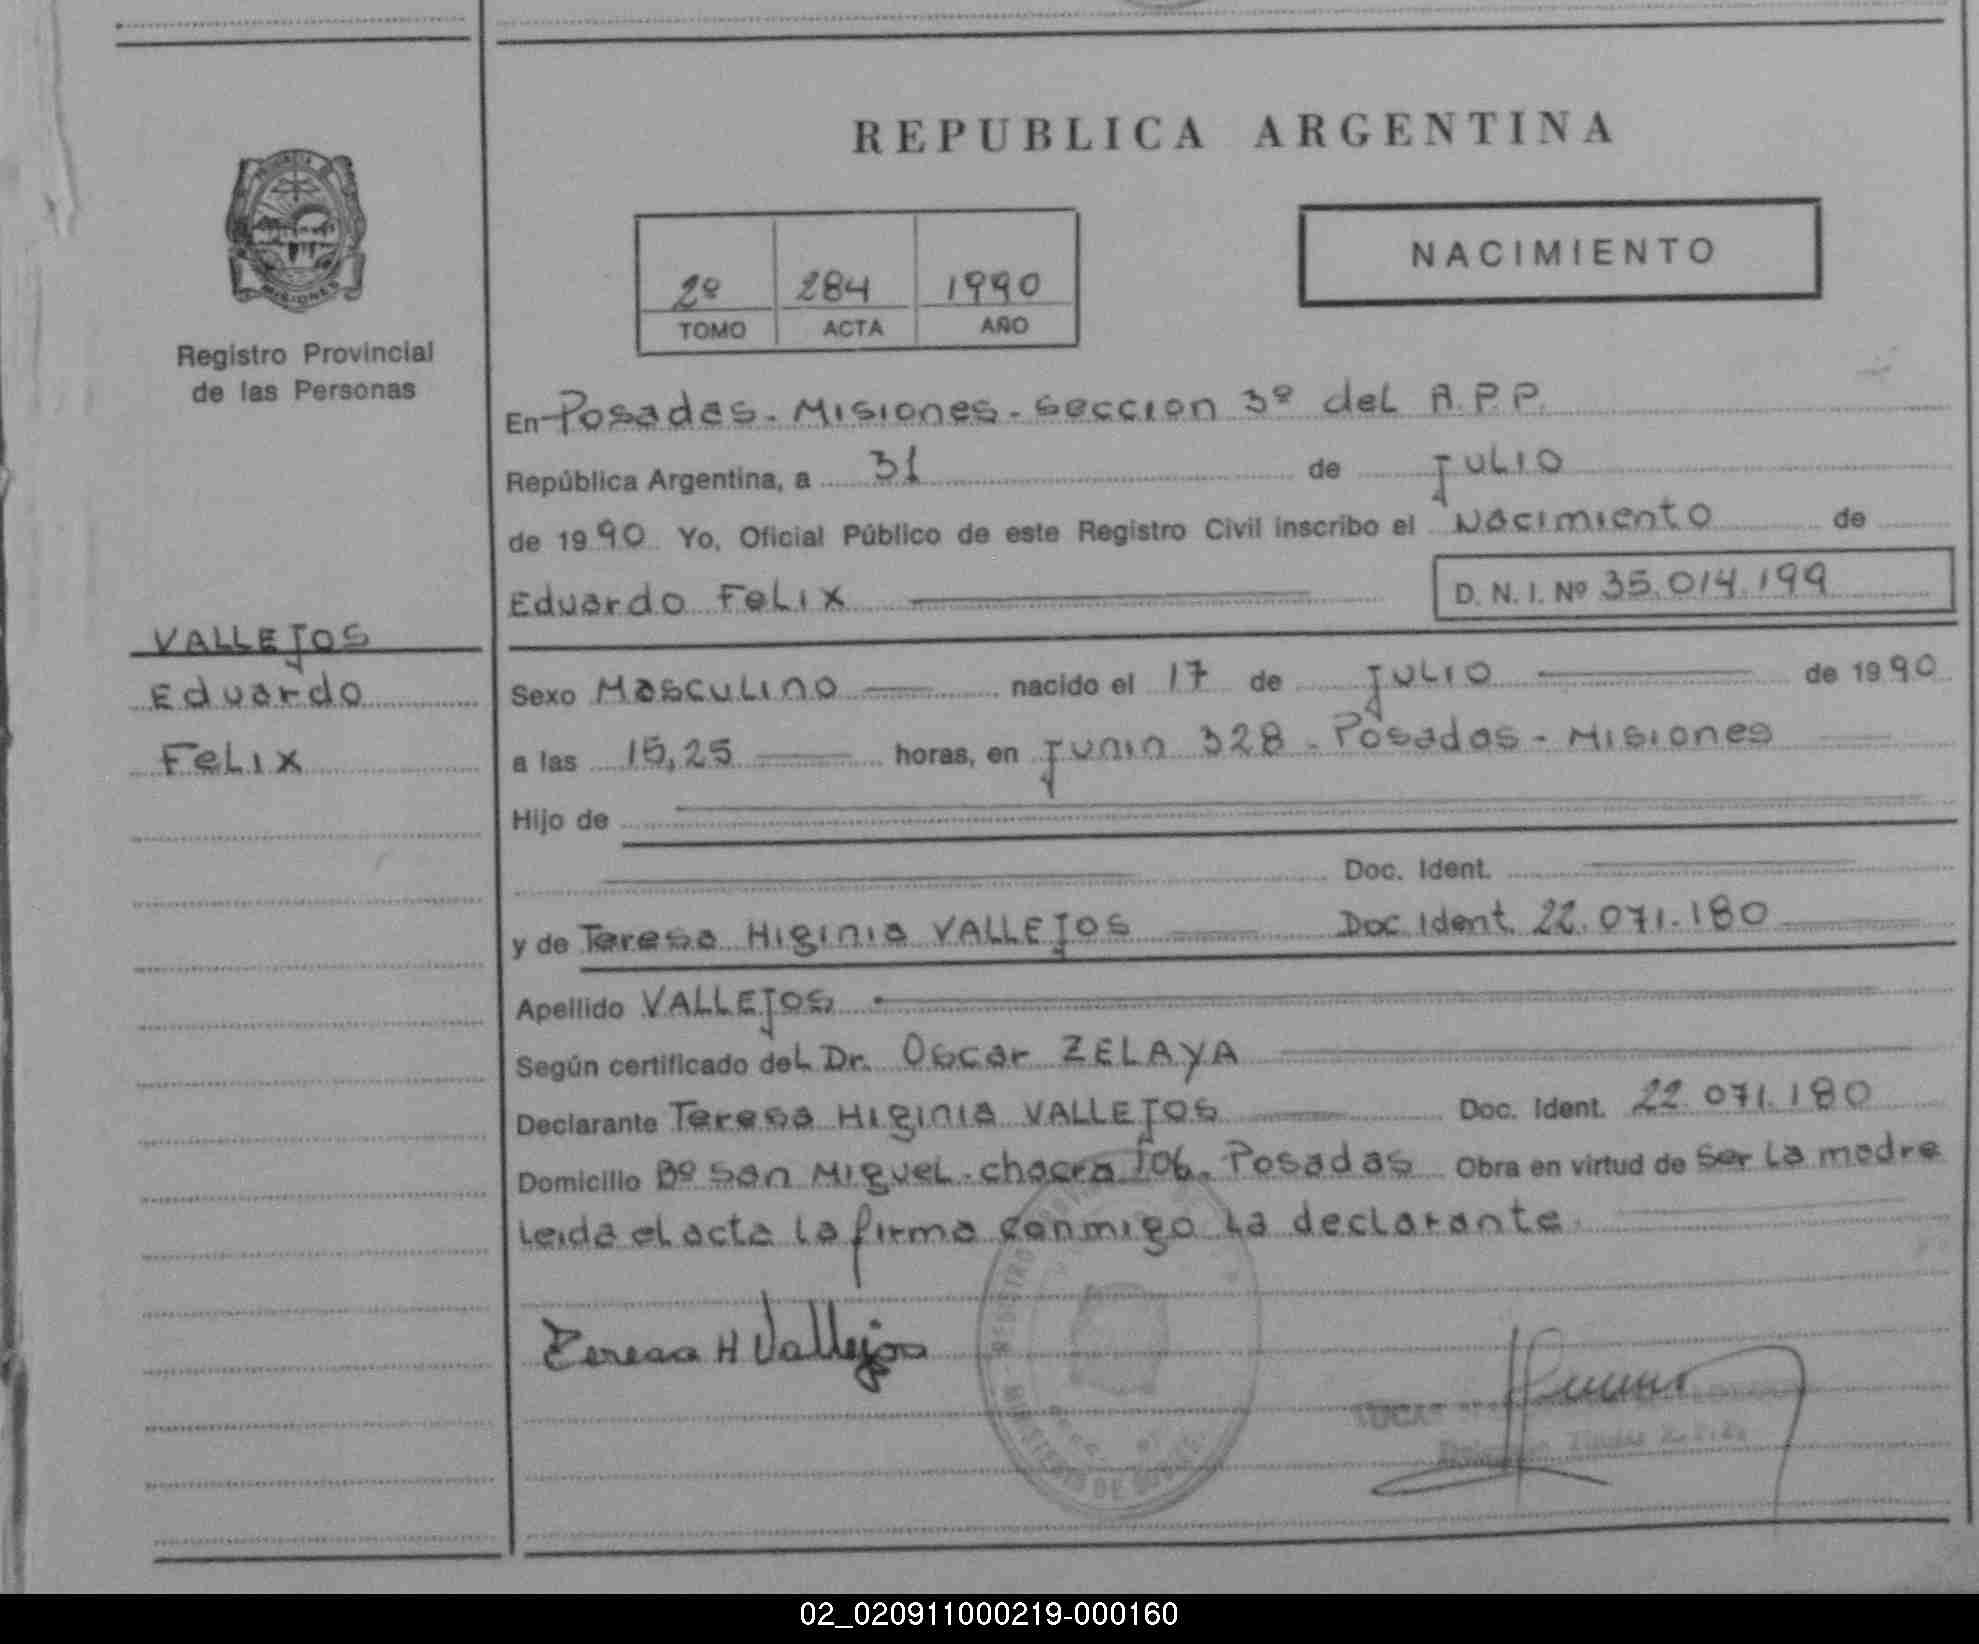 REPUBLICA ARGENTINA
NACIMIENTO
2º 284 1990
TOMO ACTA AÑO
MISIONES
Registro Provincial
de las Personas
VALLEJOS
Eduardo
Felix
En Posadas - Misiones - Seccion 3º del A.P.P.
República Argentina, a 31 de Julio
de 1990 Yo, Oficial Público de este Registro Civil inscribo el Nacimiento de
Eduardo Felix D. N. I. Nº 35.014.199
Sexo Masculino nacido el 17 de Julio de 1990
a las 15,25 horas, en Junin 328 - Posadas - Misiones
Hijo de
Doc. Ident.
y de Teresa Higinia VALLEJOS Doc Ident. 22.071.180
Apellido VALLEJOS
Según certificado del Dr. Oscar ZELAYA
Declarante Teresa Higinia VALLEJOS Doc. Ident. 22.071.180
Domicilio Bº San Miguel - chacra 106 - Posadas Obra en virtud de ser la madre
Leida el acta la firma conmigo la declarante.
Teresa H Vallejos
REGISTRO
MINISTERIO DE
02_020911000219-000160